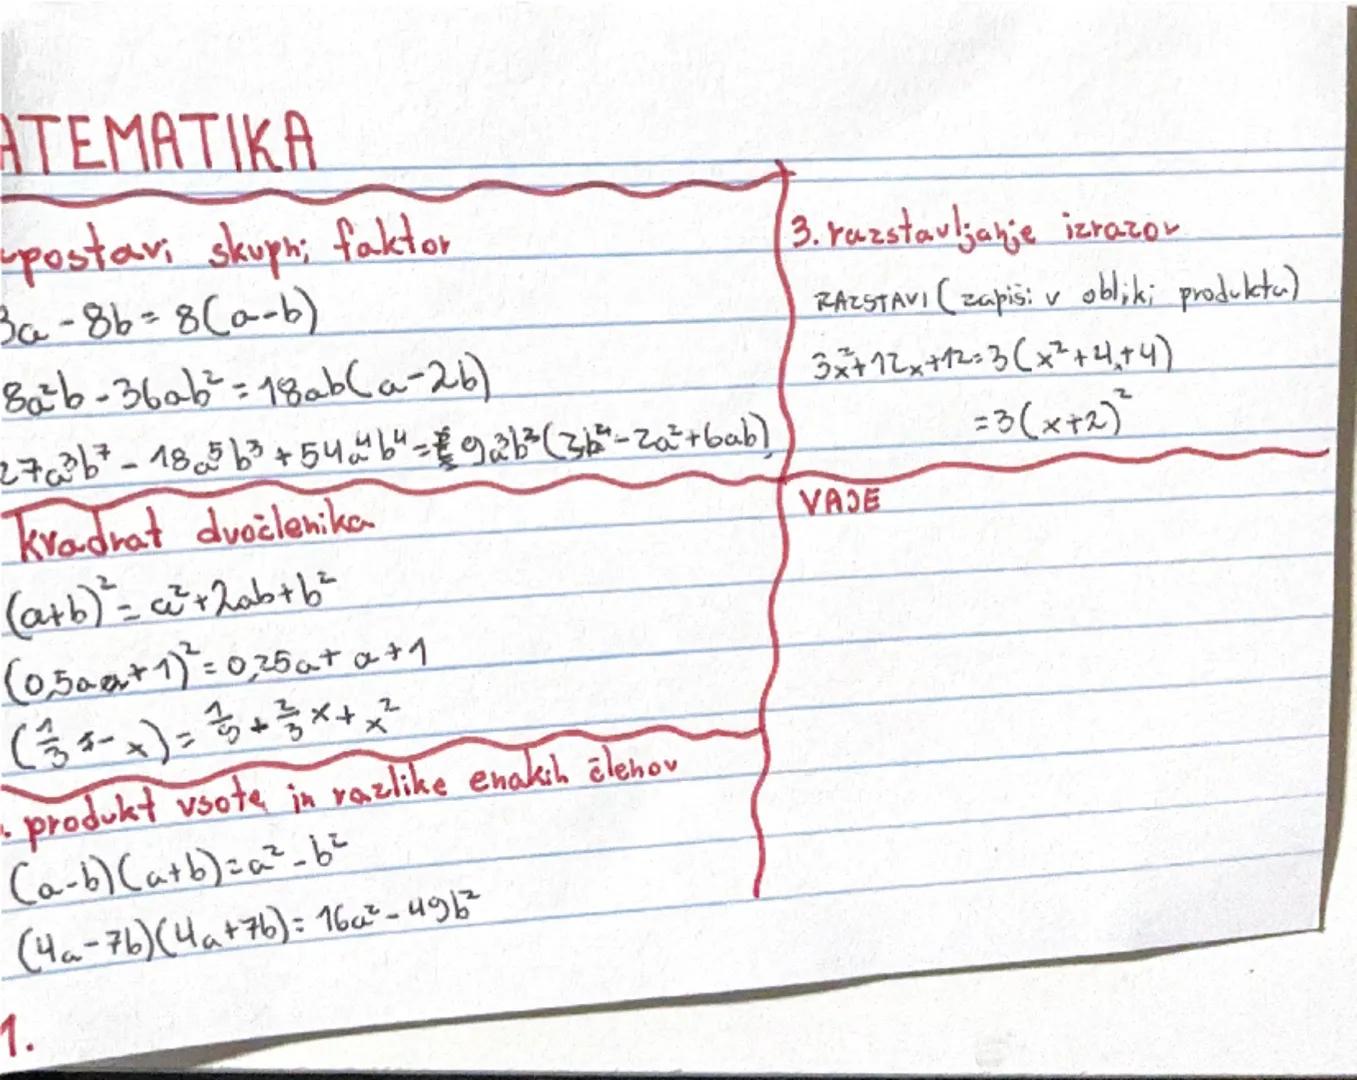 ATEMATIKA
postavi skupni faktor
3a - 8b = 8(a-b)
8a²b - 36ab² = 18ab(a-2b)
27a³b⁷ - 18a⁵b³ + 54a⁴b⁴ = 9a³b³(3b⁴-2a²+6ab)
kvadrat dvočlenika
(a+b)² = a²+2ab+b²
(0,5a+1)² = 0,25a + a + 1
(1/3 - x) = 1/9 + 2/3 x + x²
. produkt vsote in razlike enakih členov
(a-b)(a+b) = a² - b²
(4a-7b)(4a+7b) = 16a² - 49b²
1.
3. razstavljanje izrazov
RAZSTAVI (zapiši v obliki produkta)
3x²+12x+12 = 3(x²+4x+4)
= 3(x+2)²
VAJE